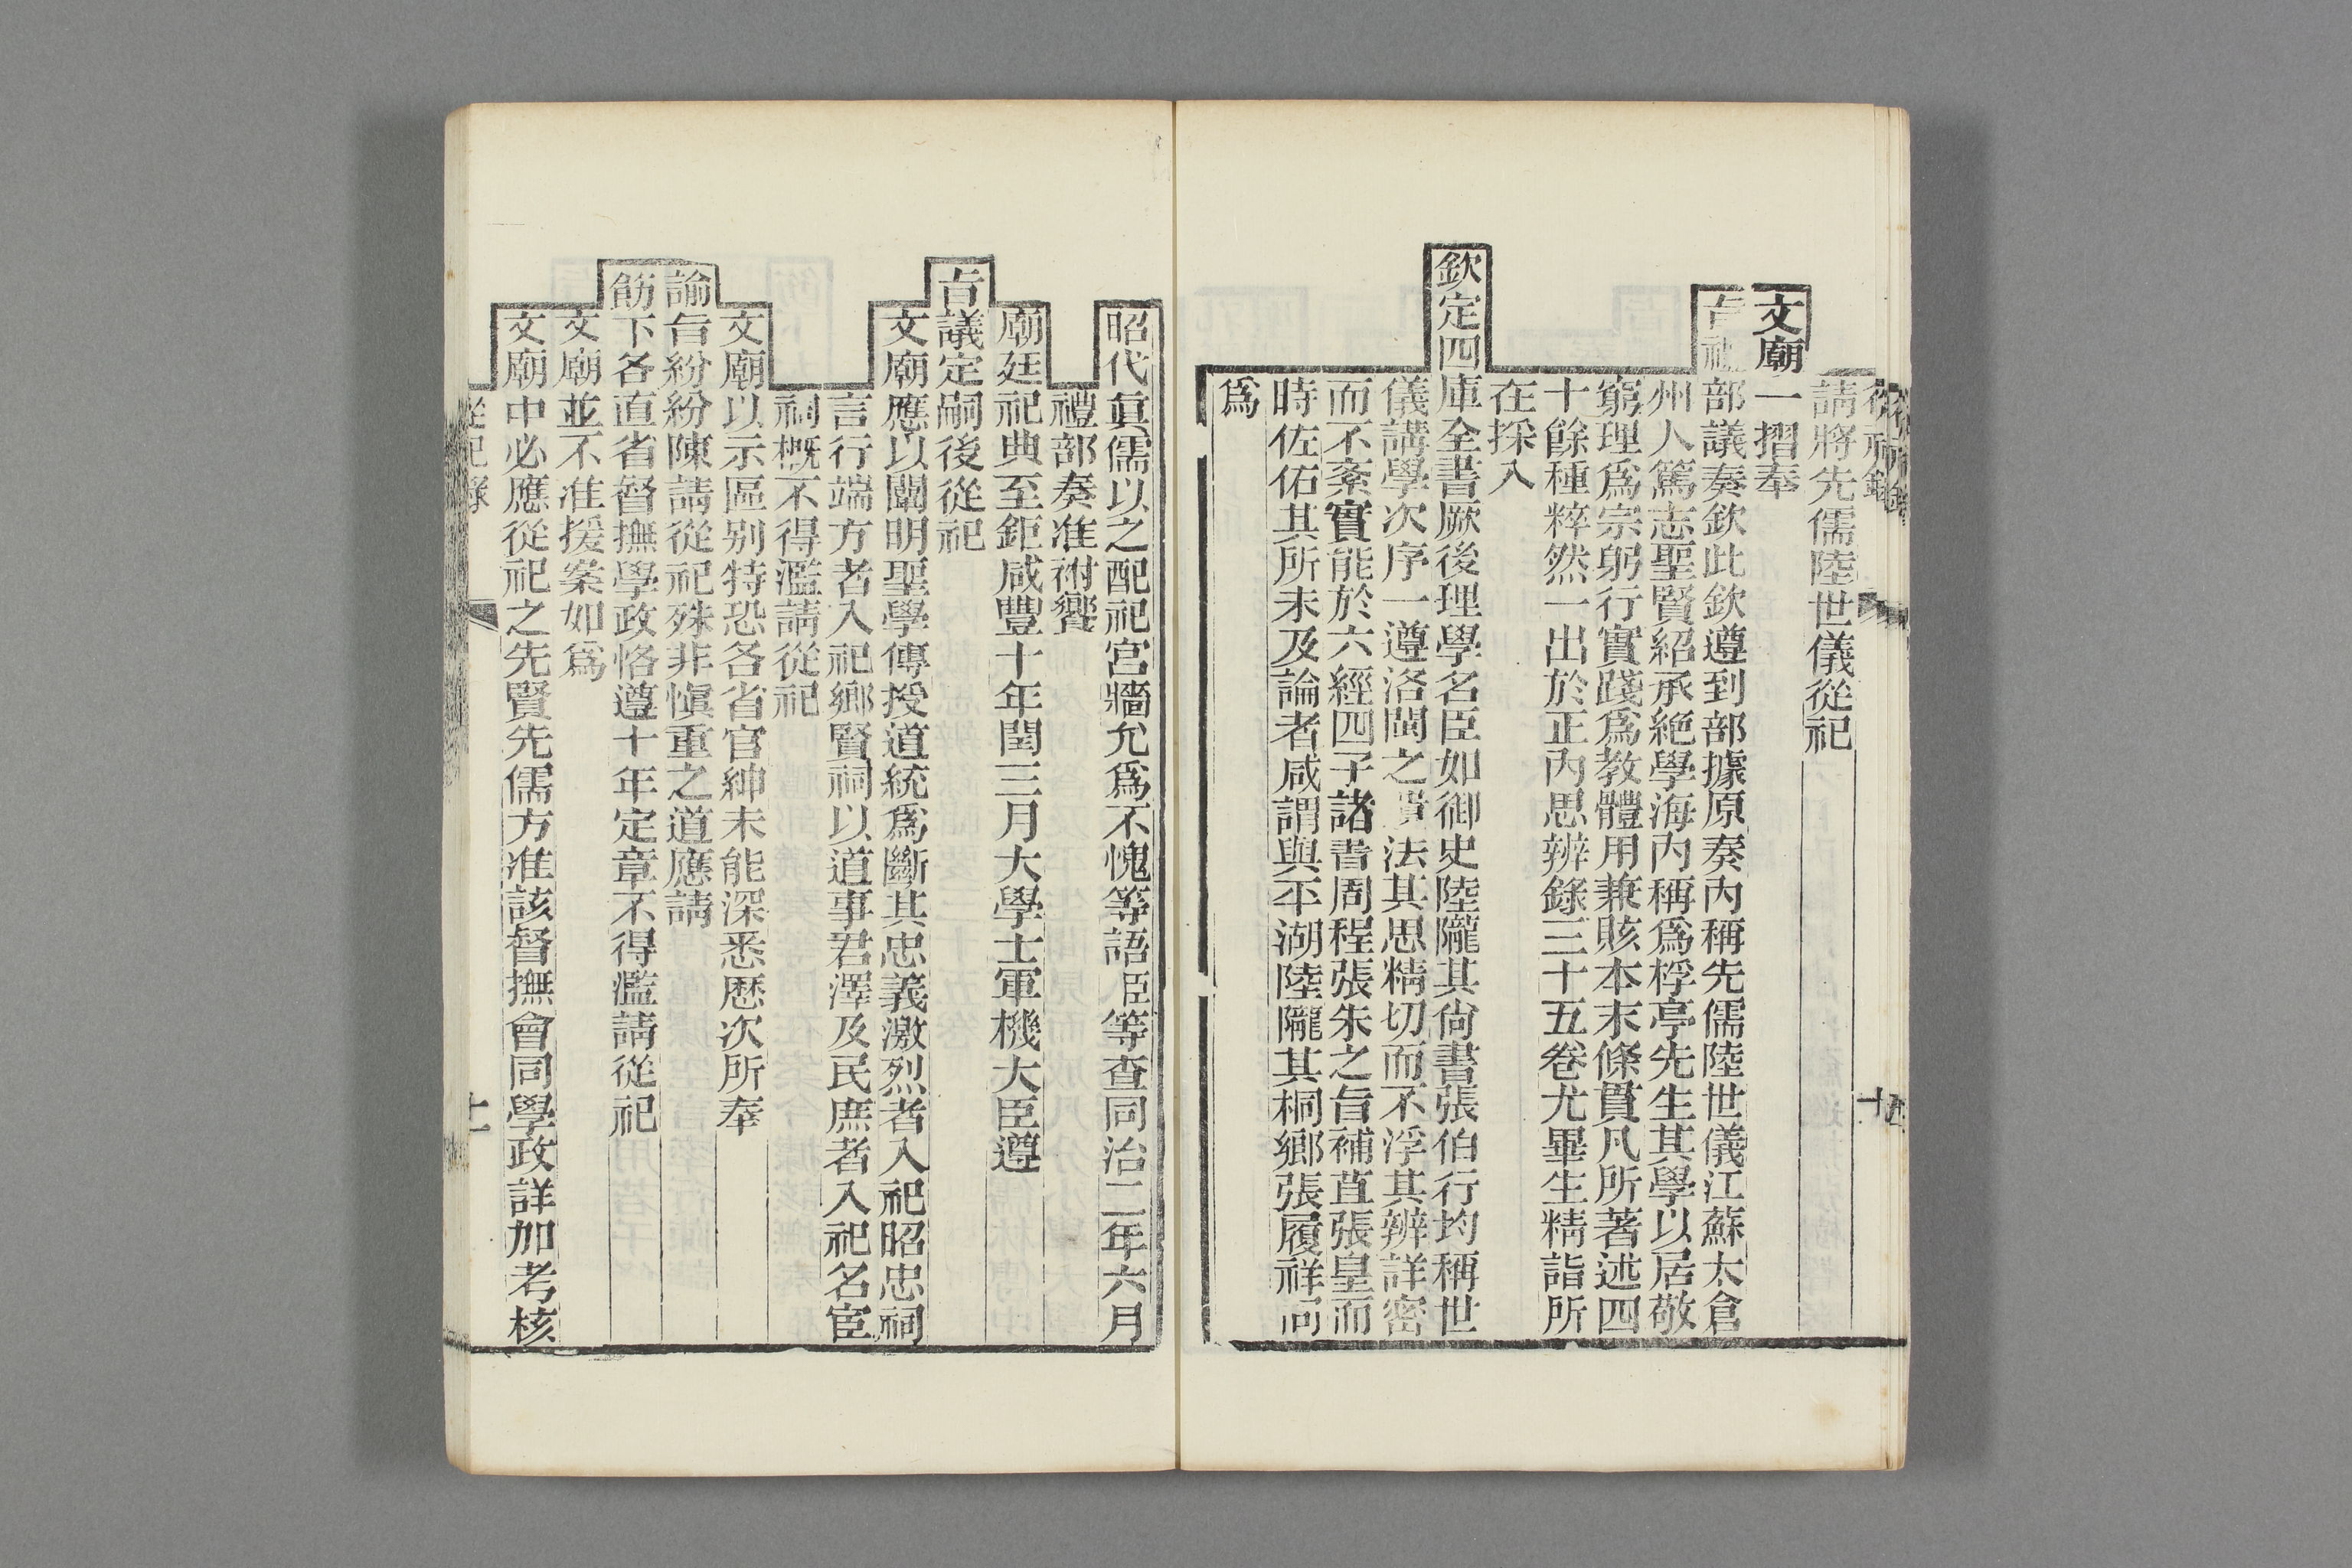 從祀錄
請將先儒陸世儀從祀
文廟一摺奉
旨禮部議奏欽此欽遵到部據原奏內稱先儒陸世儀江蘇太倉
州人篤志聖賢紹承絕學海內稱爲桴亭先生其學以居敬
窮理爲宗躬行實踐爲教體用兼賅本末條貫凡所著述四
十餘種粹然一出於正內思辨錄三十五卷尤畢生精詣所
在採入
欽定四庫全書厥後理學名臣如御史陸隴其尙書張伯行均稱世
儀講學次序一遵洛閩之法其思精切而不浮其辨詳密
而不紊實能於六經四子諸書周程張朱之旨補苴張皇而
時佐佑其所未及論者咸謂與平湖陸隴其桐鄉張履祥同
爲
昭代眞儒以之配祀宮牆允爲不愧等語臣等查同治二年六月
禮部奏准祔饗
廟廷祀典至鉅咸豐十年閏三月大學士軍機大臣遵
旨議定嗣後從祀
文廟應以闡明聖學傳授道統爲斷其忠義激烈者入祀昭忠祠
言行端方者入祀鄉賢祠以道事君澤及民庶者入祀名宦
祠概不得濫請從祀
文廟以示區別特恐各省官紳未能深悉歷次所奉
諭旨紛紛陳請從祀殊非愼重之道應請
飭下各直省督撫學政恪遵十年定章不得濫請從祀
文廟並不准援案如爲
文廟中必應從祀之先賢先儒方准該督撫會同學政詳加考核
從祀錄
十一